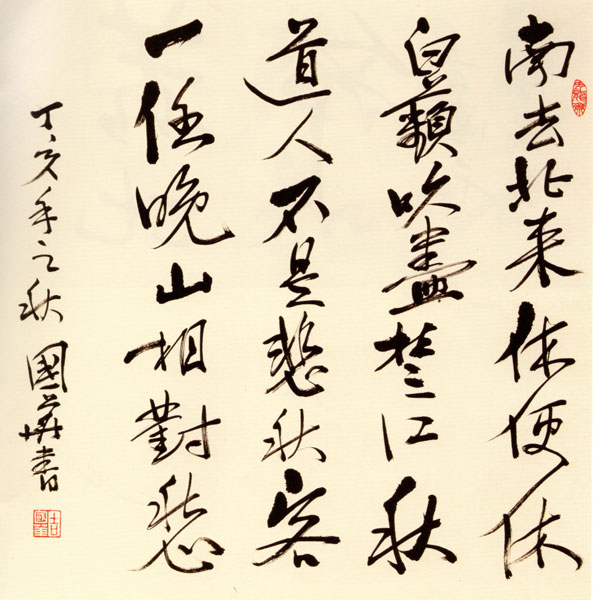 南去北来休便休
白蘋吹盡楚江秋
道人不是悲秋客
一任晚山相對愁
丁亥年之秋 國華書